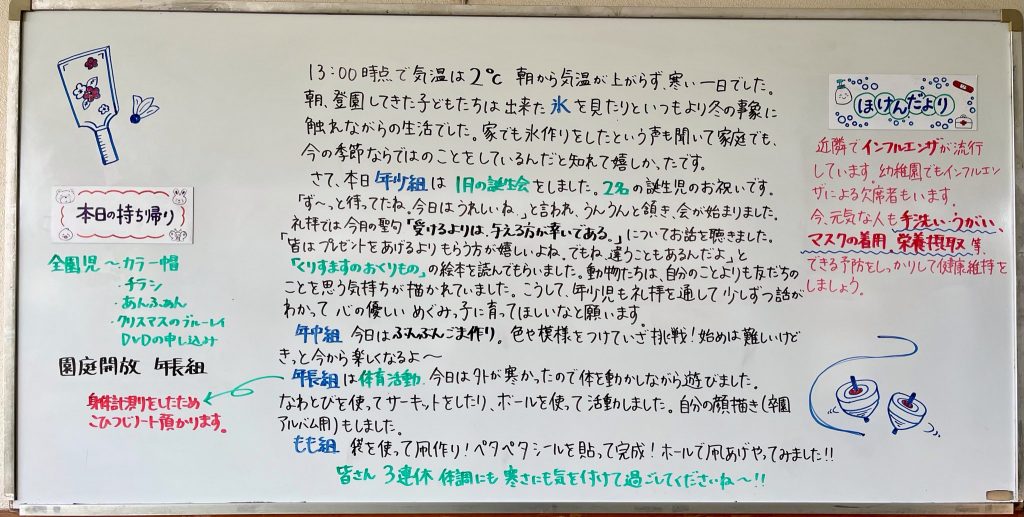 本日の持ち帰り
全園児〜カラー帽
・チラシ
・あんふぁん
・クリスマスのブルーレイ
DVDの申し込み
園庭開放 年長組
身体計測をしたため
こひつじノート預かります。
13:00時点で気温は2℃ 朝から気温が上がらず、寒い一日でした。
朝、登園してきた子どもたちは出来た氷を見たりといつもより冬の事象に
触れながらの生活でした。家でも氷作りをしたという声も聞いて家庭でも、
今の季節ならではのことをしているんだと知れて嬉しかったです。
さて、本日年少組は1月の誕生会をしました。2名の誕生児のお祝いです。
「ず〜っと待ってたね。今日はうれしいね。」と言われ、うんうんと頷き、会が始まりました。
礼拝では今月の聖句「受けるよりは、与える方が幸いである。」についてお話を聴きました。
「皆はプレゼントをあげるよりもらう方が嬉しいよね。でもね、違うこともあるんだよ」と
「くりすますのおくりもの」の絵本を読んでもらいました。動物たちは、自分のことよりも友だちの
ことを思う気持ちが描かれていました。こうして、年少児も礼拝を通して少しずつ話が
わかって心の優しいめぐみっ子に育ってほしいなと願います。
年中組 今日はぶんぶんごま作り。色や模様をつけていざ挑戦！始めは難しいけど
きっと今から楽しくなるよ〜
年長組は体育活動。今日は外が寒かったので体を動かしながら遊びました。
なわとびを使ってサーキットをしたり、ボールを使って活動しました。自分の顔描き(卒園
アルバム用)もしました。
もも組 袋を使って凧作り！ペタペタシールを貼って完成！ホールで凧あげやってみました!!
皆さん 3連休 体調にも寒さにも気を付けて過ごしてくださいね〜!!
ほけんだより
近隣でインフルエンザが流行
しています。幼稚園でもインフルエン
ザによる欠席者もいます。
今、元気な人も手洗い・うがい、
マスクの着用、栄養摂取等、
できる予防をしっかりして健康維持を
しましょう。